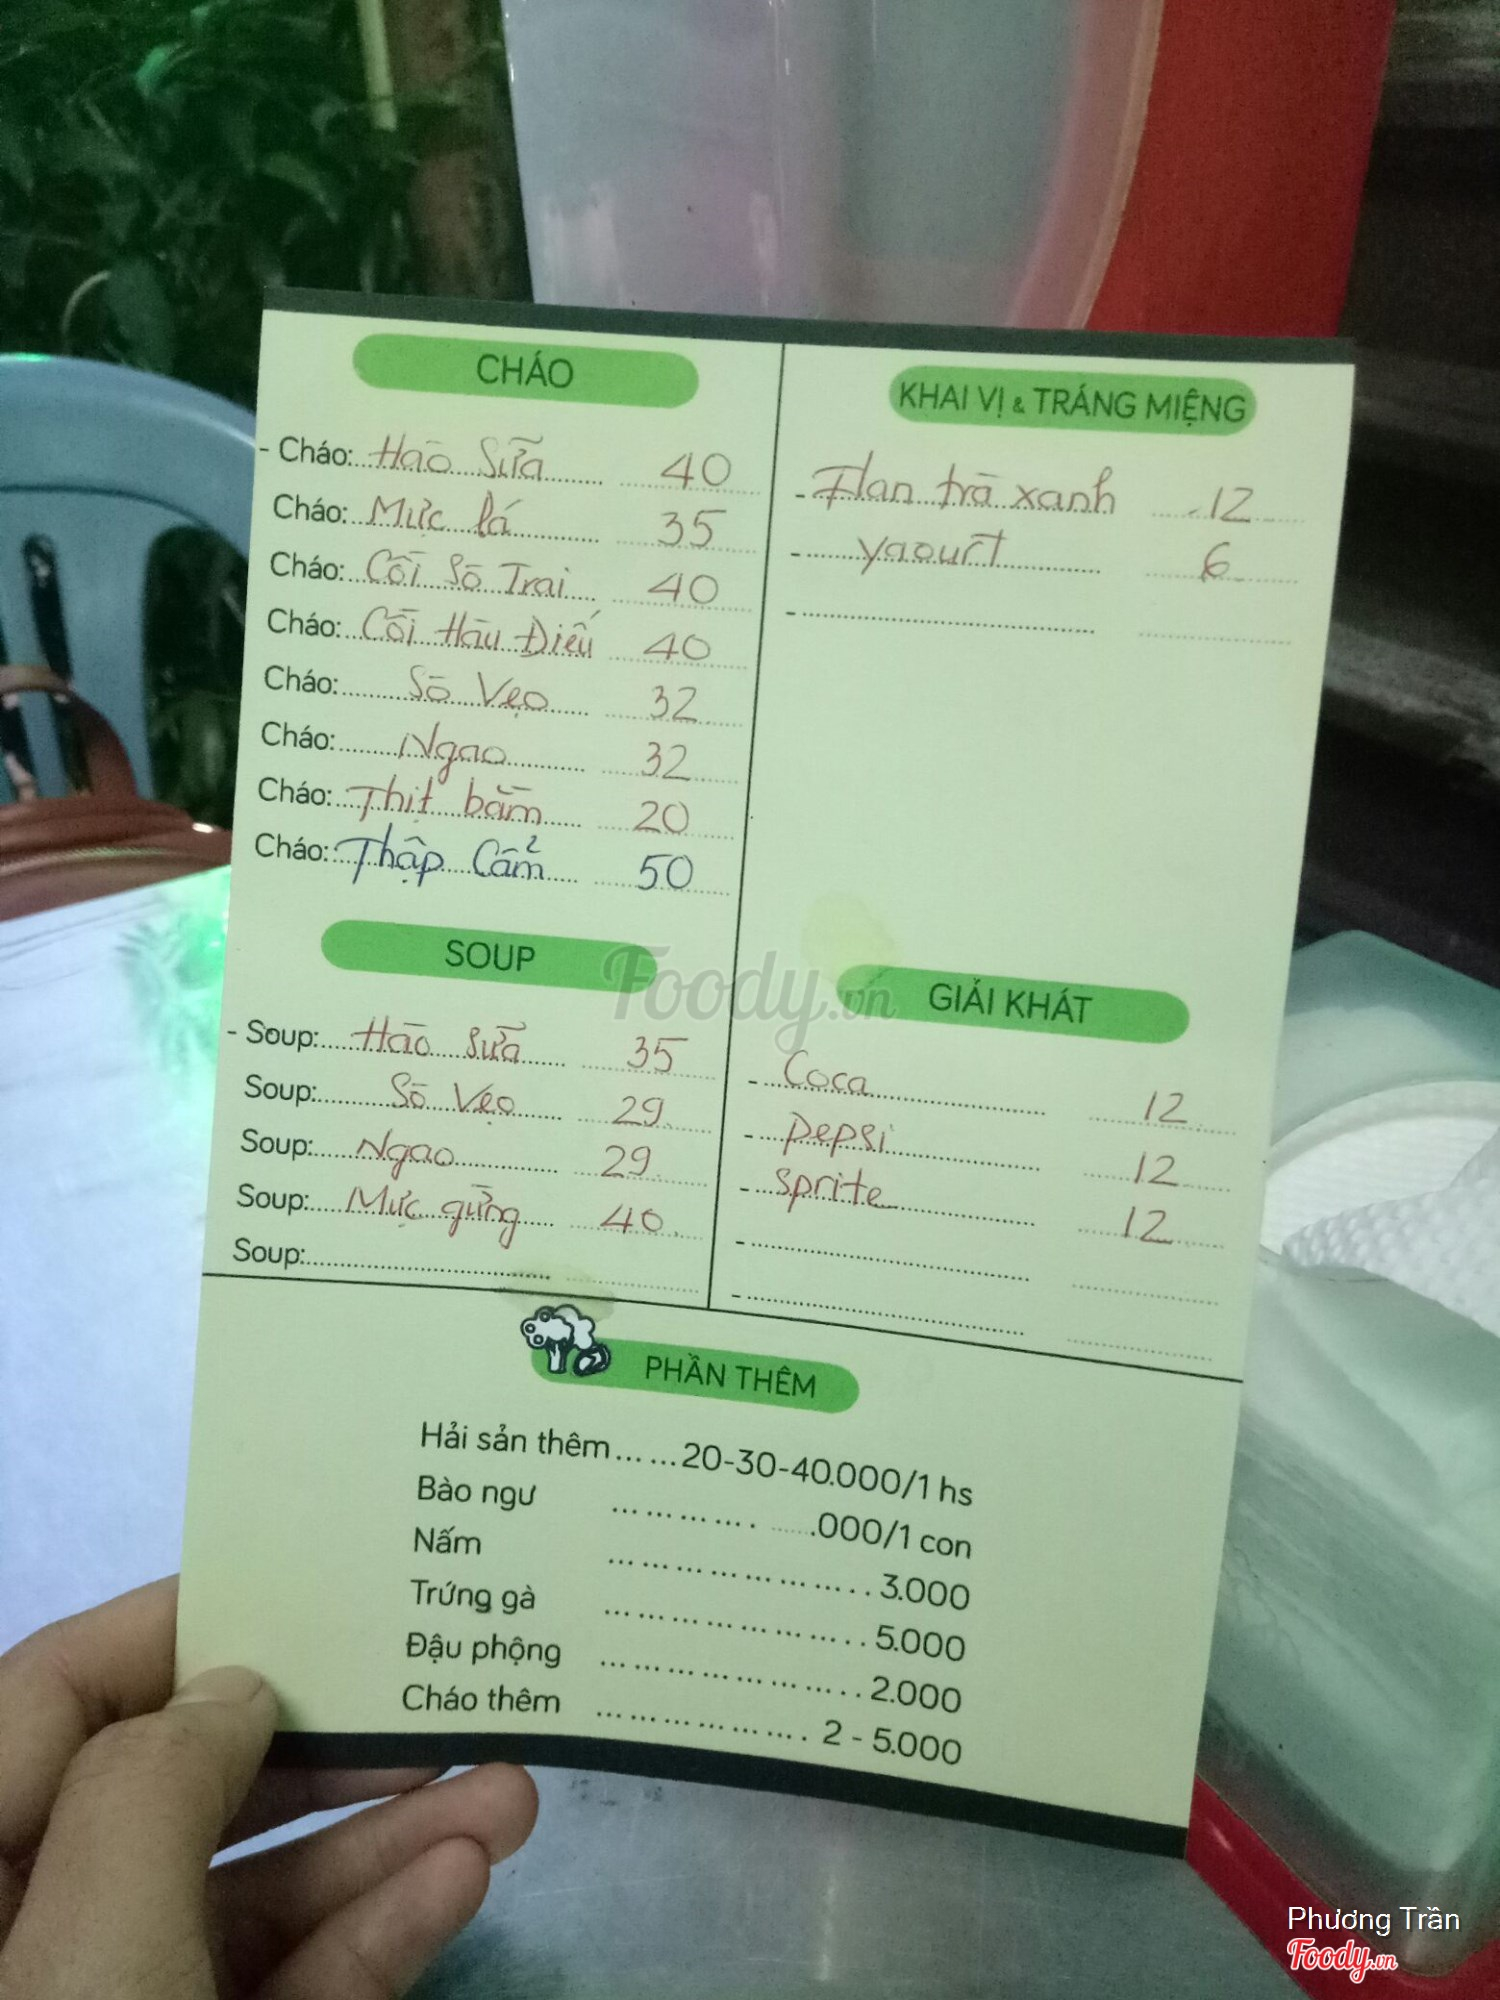 CHÁO
- Cháo: Hào Sữa 40
Cháo: Mực lá 35
Cháo: Cồi Sò Trai 40
Cháo: Cồi Hàu Điếu 40
Cháo: Sò Vẹo 32
Cháo: Ngao 32
Cháo: Thịt bằm 20
Cháo: Thập Cẩm 50
SOUP
- Soup: Hào Sữa 35
Soup: Sò Vẹo 29
Soup: Ngao 29
Soup: Mực gừng 40
Soup:
KHAI VỊ & TRÁNG MIỆNG
- Flan trà xanh 12
- yaourt 6
-
GIẢI KHÁT
- Coca 12
- Pepsi 12
- Sprite 12
-
-
PHẦN THÊM
Hải sản thêm ...... 20-30-40.000/1 hs
Bào ngư ............. .......000/1 con
Nấm ....................... 3.000
Trứng gà ....................... 5.000
Đậu phộng ....................... 2.000
Cháo thêm ................... 2 - 5.000
Foody.vn
Phương Trần
Foody.vn